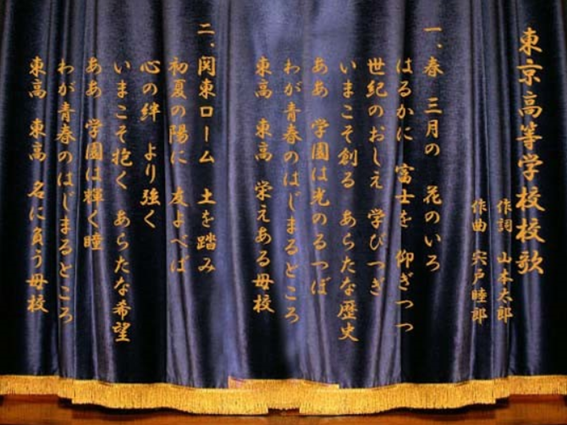 東京高等学校校歌
作詞 山本太郎
作曲 宍戸睦郎
一、春 三月の 花のいろ
はるかに 富士を 仰ぎつつ
世紀のおしえ 学びつぎ
いまこそ創る あらたな歴史
ああ 学園は光のるつぼ
わが青春のはじまるどころ
東高 東高 栄えある母校
二、関東ローム 土を踏み
初夏の陽に 友よべば
心の絆 より強く
いまこそ抱く あらたな希望
ああ 学園は輝く瞳
わが青春のはじまるどころ
東高 東高 名に負う母校